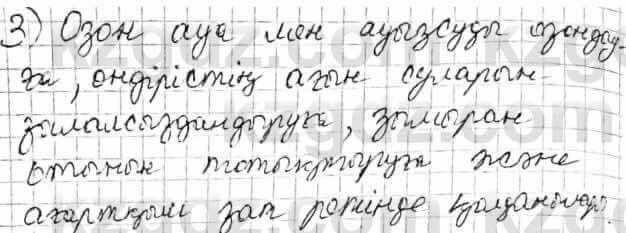 3) Озон ауа мен ауызсуды озондау-
ға, өндірістің ағын суларын
залалсыздандыруға, зымыран
отынын тотықтыруға және
ағартқыш зат ретінде қолданылады.